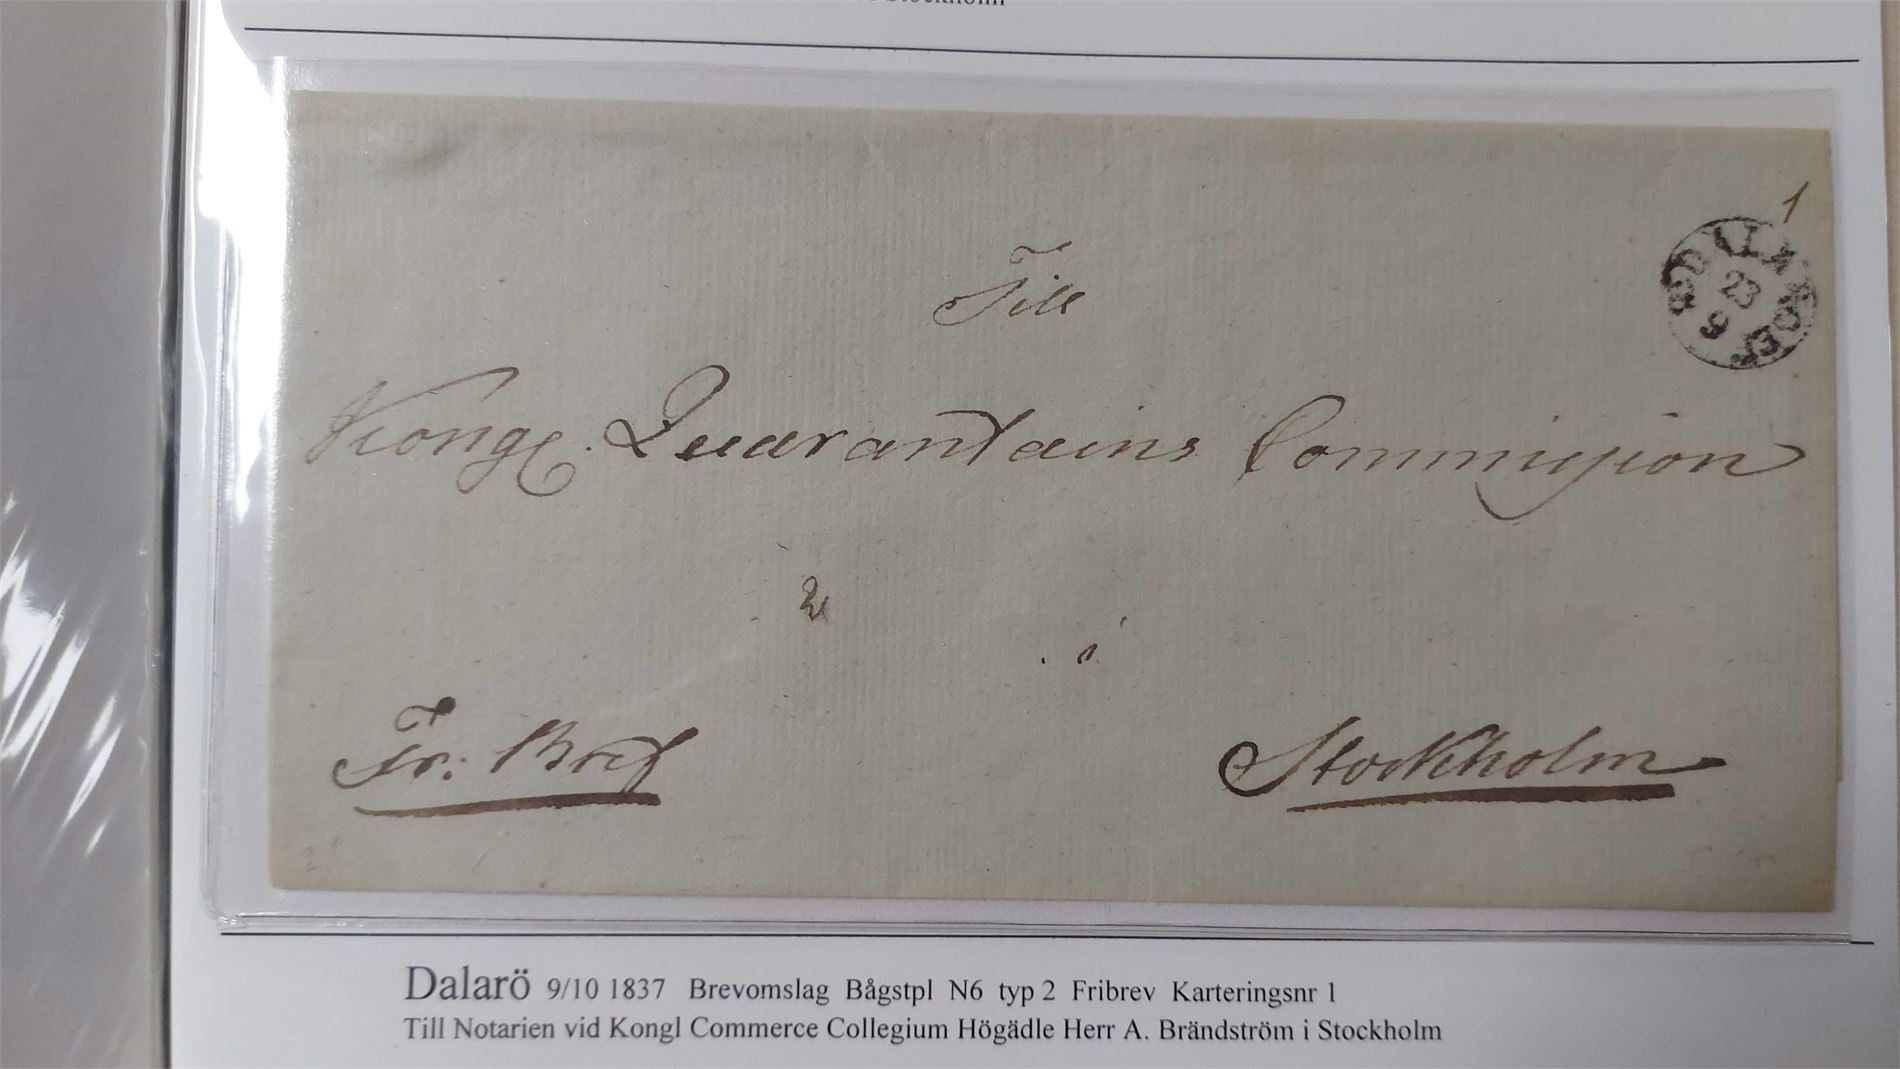 Stockholm
1
DALARÖE
23
9
Till
Kongl. Quarantains Commission
2
i
Fr: Bref
Stockholm
2
Dalarö 9/10 1837 Brevomslag Bågstpl N6 typ 2 Fribrev Karteringsnr 1
Till Notarien vid Kongl Commerce Collegium Högädle Herr A. Brändström i Stockholm